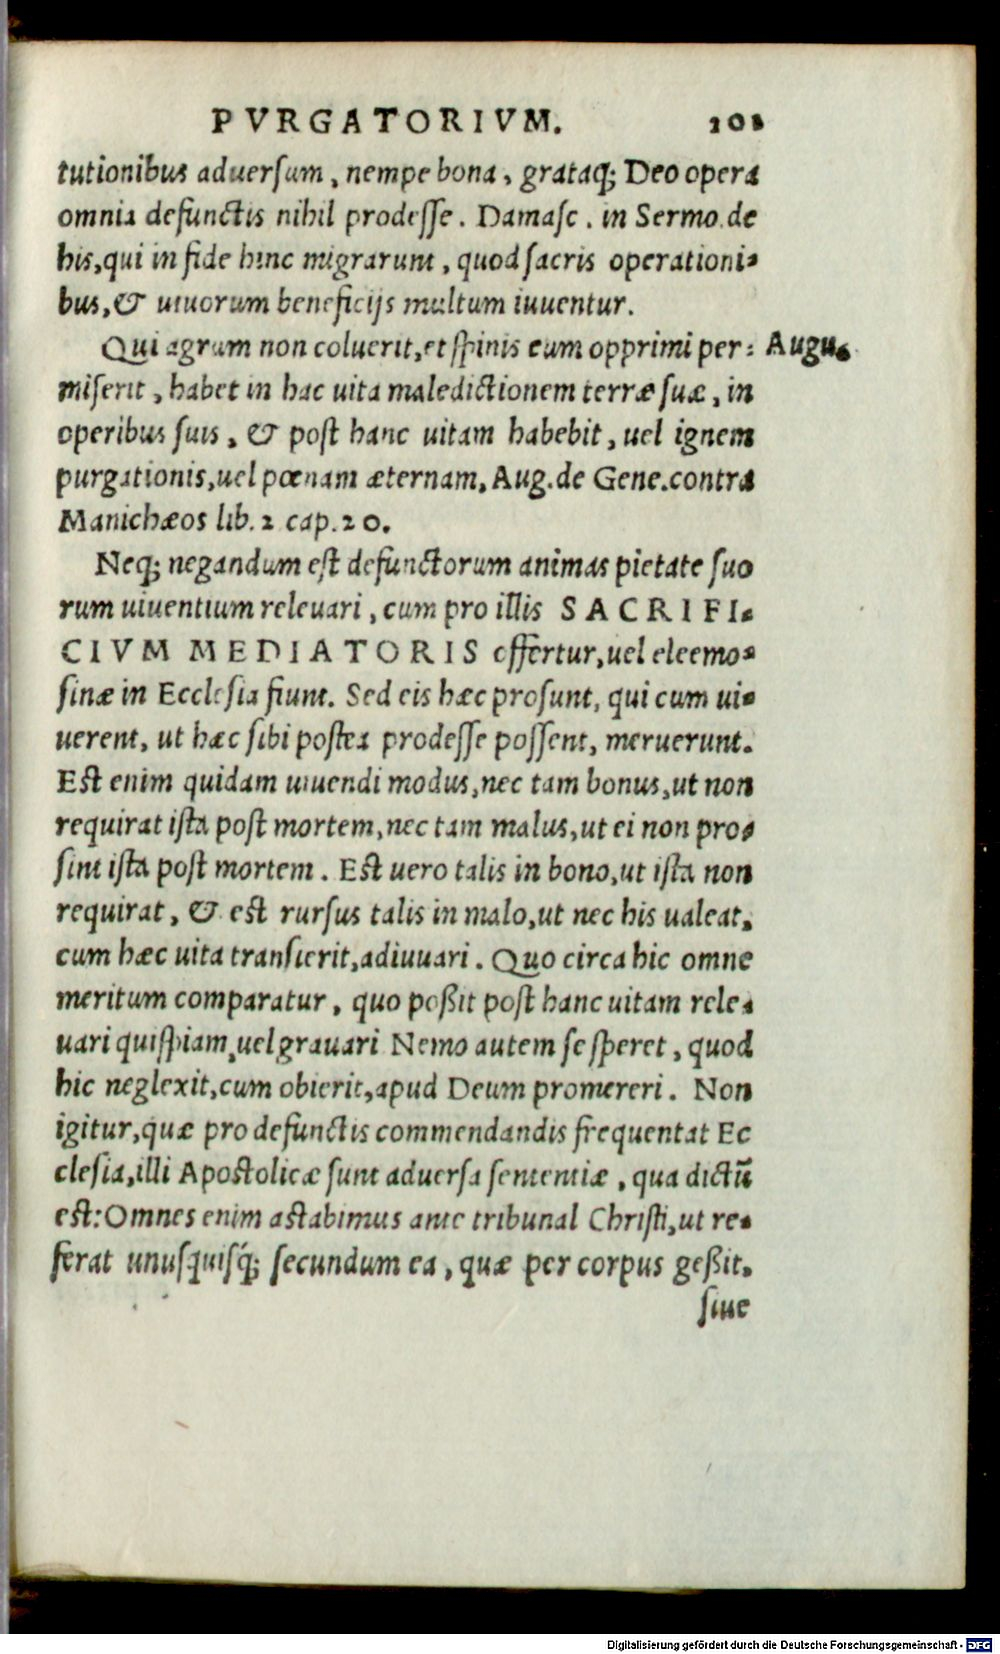 PVRGATORIVM. 101
tutionibus aduersum, nempe bona, grataq; Deo opera
omnia defunctis nihil prodesse. Damasc. in Sermo. de
his, qui in fide hinc migrarunt, quod sacris operationi-
bus, & uiuorum beneficijs multum iuuentur.
Qui agrum non coluerit, et spinis eum opprimi per- Augu.
miserit, habet in hac uita maledictionem terræ suæ, in
operibus suis, & post hanc uitam habebit, uel ignem
purgationis, uel pœnam æternam, Aug. de Gene. contra
Manichæos lib. 2 cap. 20.
Neq; negandum est defunctorum animas pietate suo
rum uiuentium releuari, cum pro illis SACRIFI-
CIVM MEDIATORIS offertur, uel eleemo-
sinæ in Ecclesia fiunt. Sed eis hæc prosunt, qui cum ui-
uerent, ut hæc sibi postea prodesse possent, meruerunt.
Est enim quidam uiuendi modus, nec tam bonus, ut non
requirat ista post mortem, nec tam malus, ut ei non pro-
sint ista post mortem. Est uero talis in bono, ut ista non
requirat, & est rursus talis in malo, ut nec his ualeat,
cum hæc uita transierit, adiuuari. Quo circa hic omne
meritum comparatur, quo poßit post hanc uitam rele-
uari quispiam, uel grauari Nemo autem se speret, quod
hic neglexit, cum obierit, apud Deum promereri. Non
igitur, quæ pro defunctis commendandis frequentat Ec
clesia, illi Apostolicæ sunt aduersa sententiæ, qua dictū
est: Omnes enim astabimus ante tribunal Christi, ut re-
ferat unusquisq; secundum ea, quæ per corpus geßit,
siue
Digitalisierung gefördert durch die Deutsche Forschungsgemeinschaft - DFG